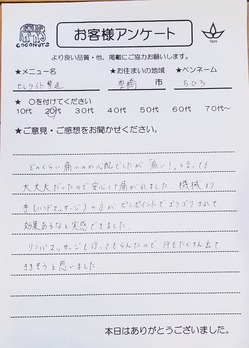 COCONUTS
お客様アンケート
より良い品質・他、掲載にご協力お願いします。
★メニュー名 ★お住まいの地域 ★ペンネーム
セルライト撃退 市 ちひろ
★ ○を付けてください
10代 20代 30代 40代 50代 60代 70代～
★ご意見・ご感想をお聞かせください。
どのくらい痛いのか心配でしたが「痛い！」と言っても
大丈夫だったので安心して 機械より
手(ハンドマッサージ)の方がピンポイントでゴリゴリされて
効果あるなと実感できました。
リンパマッサージも行ってもらえたので、汗もたくさん出て
ききそうと思いました
本日はありがとうございました。